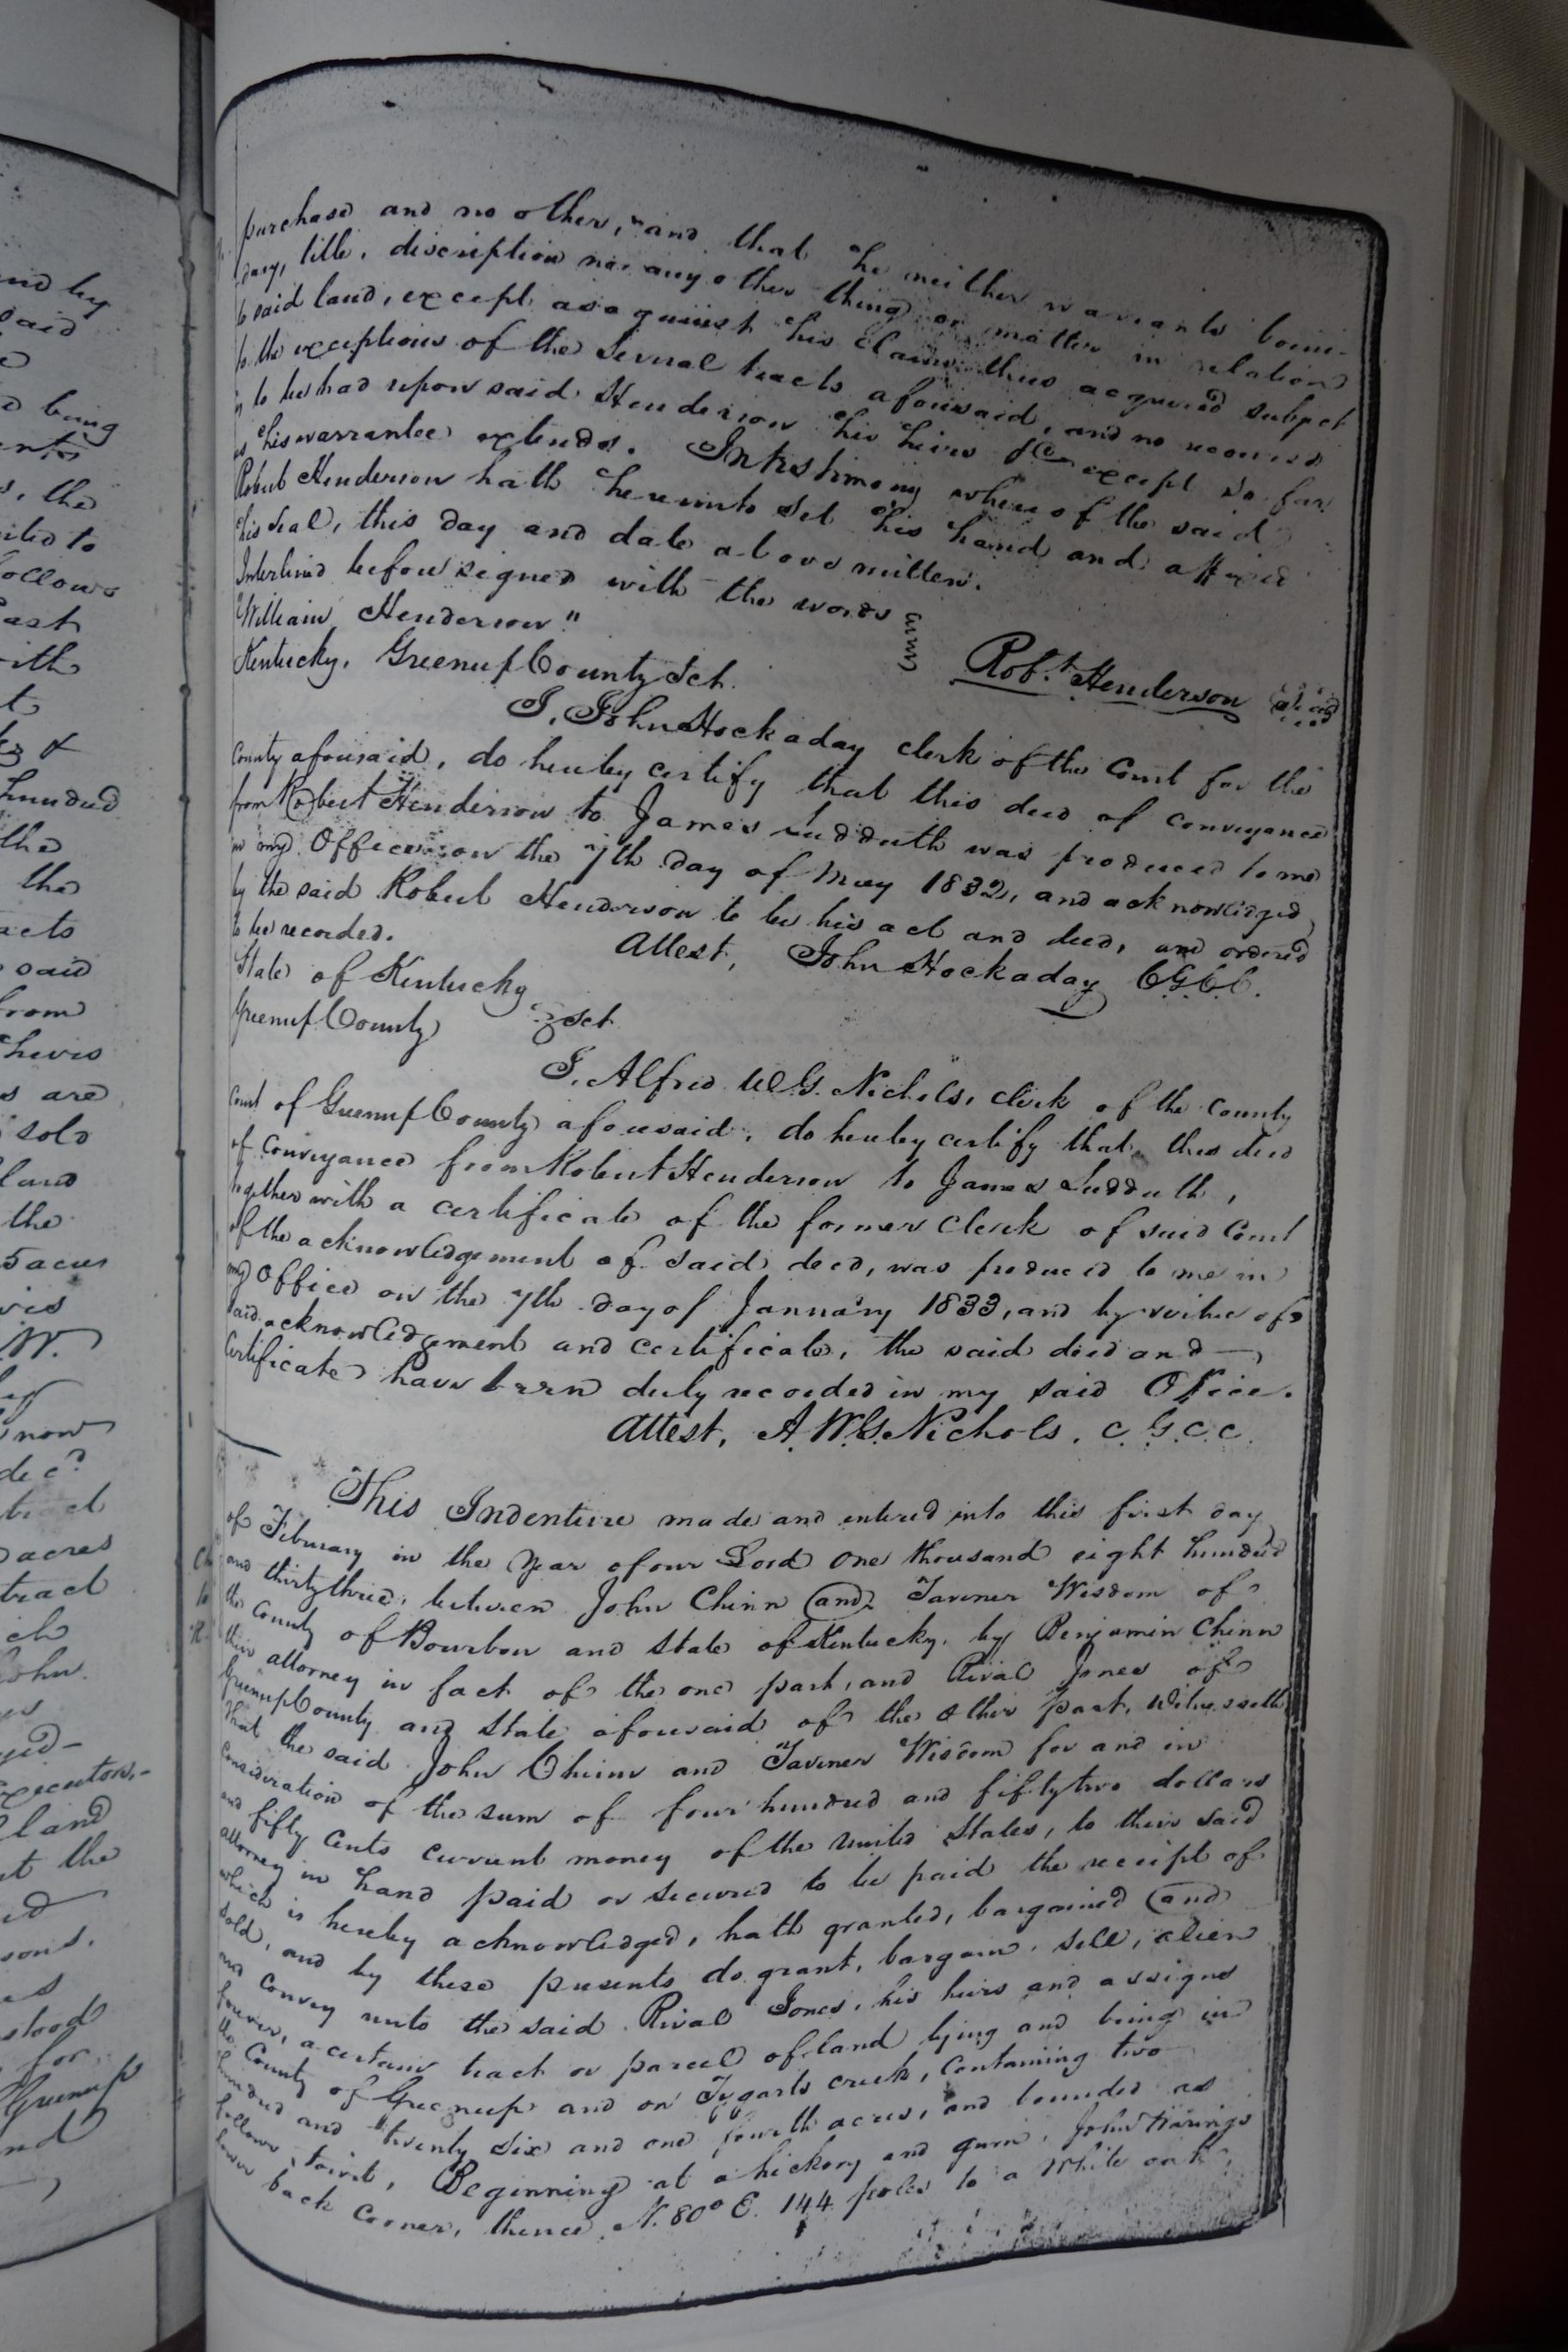 purchased and no other, and that he neither warrants boun-
dary, title, discription nor any other thing or matter in relation
to said land, except as against his claim thus acquired subject
to the exceptions of the several tracts aforesaid, and no recourse
to be had upon said Henderson his heirs &c except so far
as his warrantee extends. In testimony whereof the said
Robert Henderson hath hereunto set his hand and affixed
his seal, this day and date above written.
Interlined before signed with the words
"William Henderson"
Robt. Henderson
Kentucky, Greenup County Sct.
I, John Hockaday clerk of the Court for the
County aforesaid, do hereby certify that this deed of conveyance
from Robert Henderson to James Sudduth was produced to me
in my Office on the 7th day of May 1832, and acknowledged
by the said Robert Henderson to be his act and deed, and ordered
to be recorded.
Attest, John Hockaday C.G.C.C.
State of Kentucky
Greenup County Sct
I, Alfred W.G. Nichols, clerk of the County
Court of Greenup County aforesaid, do hereby certify that this deed
of conveyance from Robert Henderson to James Sudduth,
together with a certificate of the former clerk of said Court
of the acknowledgement of said deed, was produced to me in
my Office on the 7th day of January 1833, and by virtue of
said acknowledgement and certificate, the said deed and
Certificate have been duly recorded in my said Office.
Attest, A.W.G. Nichols, C.G.C.C.
This Indenture made and entered into this first day
of February in the Year of our Lord one thousand eight hundred
and thirty three, between John Chinn and Tavner Wisdom of
the County of Bourbon and State of Kentucky, by Benjamin Chinn
their attorney in fact of the one part, and Rival Jones of
Greenup County and State aforesaid of the other part, Witnesseth
that the said John Chinn and Tavner Wisdom for and in
consideration of the sum of four hundred and fifty two dollars
and fifty cents current money of the United States, to their said
attorney in hand paid or secured to be paid the receipt of
which is hereby acknowledged, hath granted, bargained and
sold, and by these presents do grant, bargain, sell, alien
and convey unto the said Rival Jones, his heirs and assigns
forever, a certain tract or parcel of land lying and being in
the County of Greenup and on Tygarts creek, containing two
hundred and twenty six and one fourth acres, and bounded as
follows, towit, Beginning at a hickory and gum, John
lower back corner, thence N. 80° E. 144 poles to a White oak,